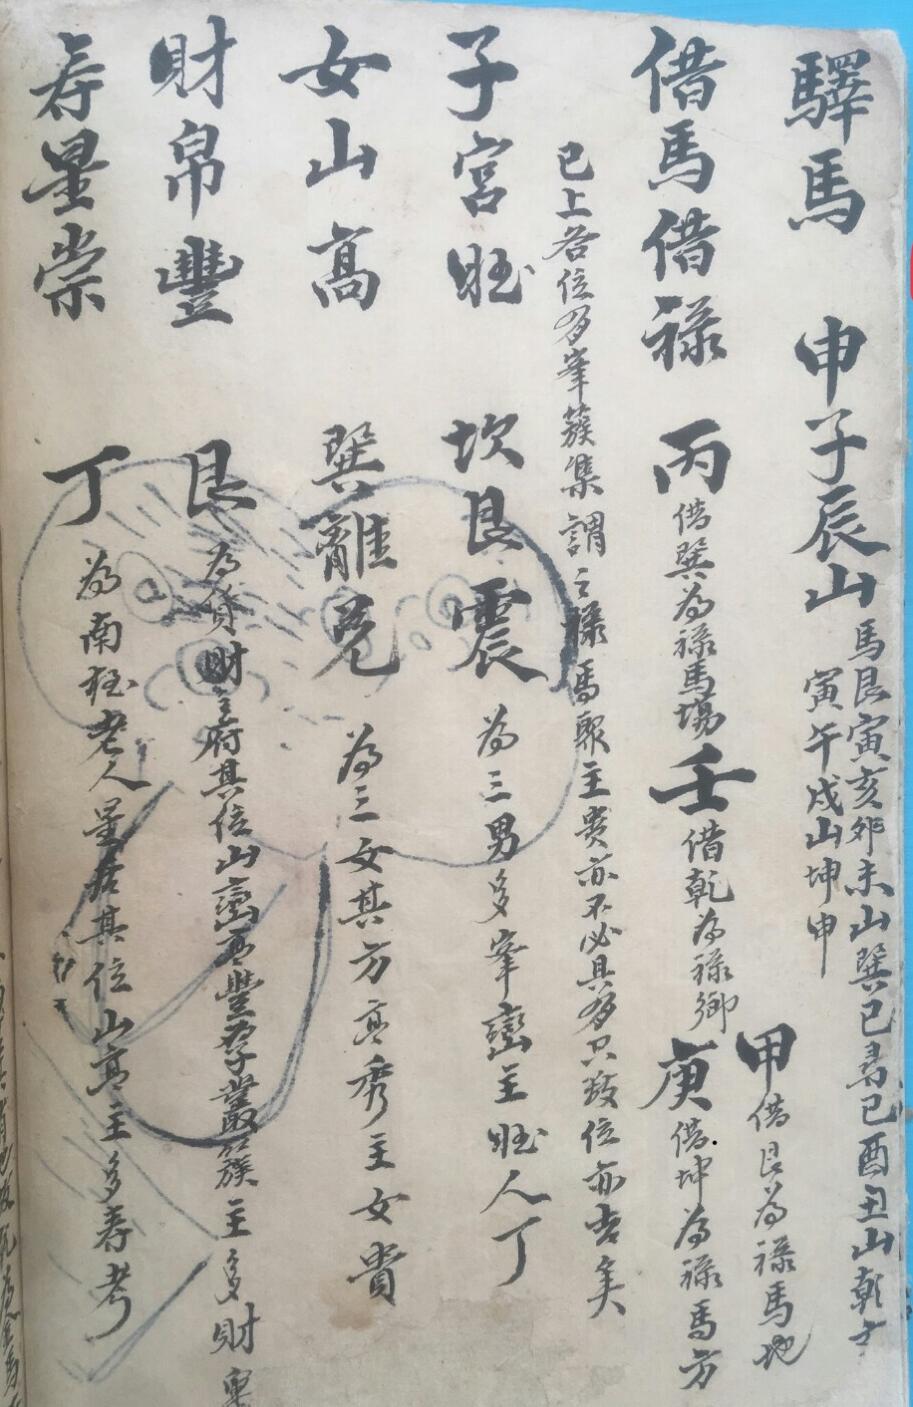 驛馬 申子辰山 馬艮寅亥卯未山巽巳 巳酉丑山乾
寅午戌山坤申
甲 借艮為祿馬地
借馬借祿 丙 借巽為祿馬場 壬 借乾為祿鄉 庚 借坤為祿馬方
已上各位多峯簇集謂之祿馬聚主貴亦不必具多只数位亦吉矣
子宮旺 坎艮震 為三男多峯巒主旺人丁
女山高 巽離兌 為三女其方高秀主女貴
財帛豐 艮 為貨財之府其位山巒 豐厚叢簇主多財
寿星崇 丁 為南極老人星居其位山高主多寿考